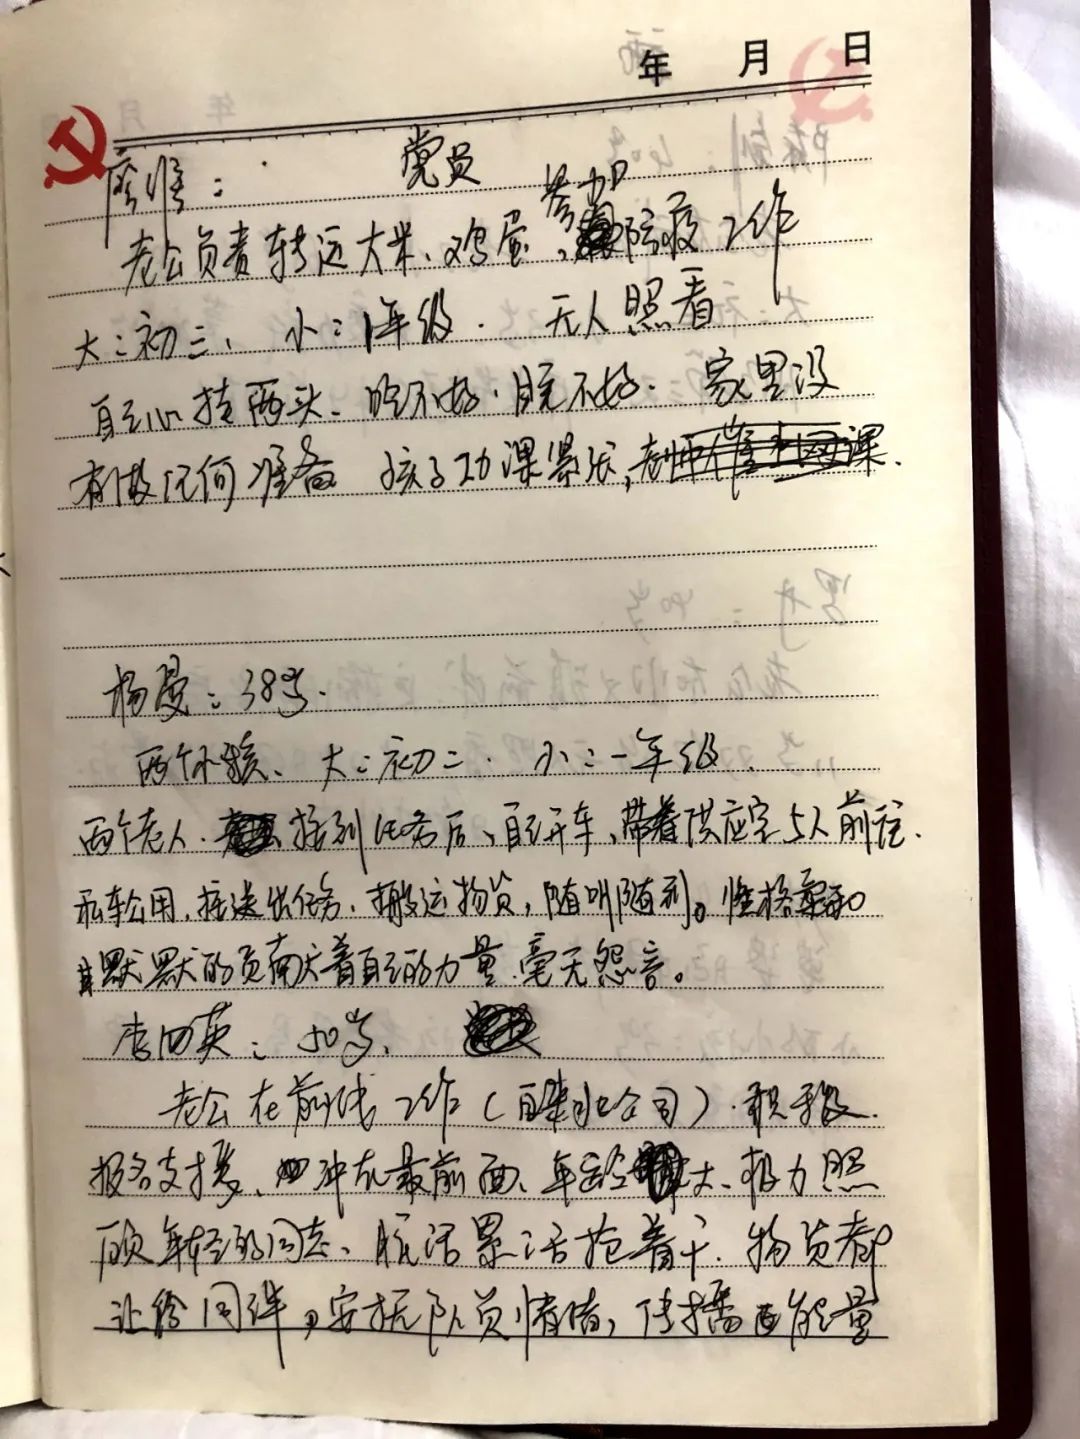 年 月 日
党员
老公负责转运大米、鸡蛋、参加防疫工作
大:初三、小:1年级. 无人照看
自己心挂两头、吃不好.睡不好. 家里没
有做任何准备 孩子功课紧张,老师催上网课.
杨曼:38岁.
两个小孩、大:初二. 小:一年级.
两个老人. 接到任务后、自己开车、带着供应室5人前往.
私车公用.接送出任务、搬运物资,随叫随到。性格柔和
默默的贡献着自己的力量.毫无怨言。
李四英:50岁.
老公在前线工作(自来水公司).积极
报名支援、冲在最前面、年龄大、极力照
顾年轻的同志、脏活累活抢着干.物资都
让给同伴,安抚队员情绪,传播正能量